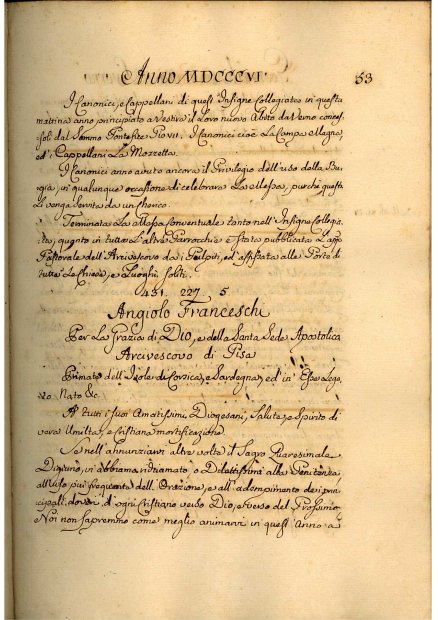 Anno MDCCCVI. 53
I Canonici, e Cappellani di quest' Insigne Collegiata in questa
mattina anno principiato a Vestire il Loro nuovo Abito da Verno conces
soli dal Sommo Pontefice Pio VII. I Canonici cioè La Cappa Magna
ed i Cappellani La Mozzetta.
I Canonici anno avuto ancora il Privilegio dell'uso della Bu
gia, in qualunque occasione di celebrare La Messa, purchè questa
si venga servita da un cherico.
Terminata La Messa Conventuale tanto nell' Insigne Collegia
ta, quanto in tutte L'altre Parrocchie è stata pubblicata La
Pastorale dell' Arcivescovo da i Pulpiti, ed affissata alle Porte di
tutte Le Chiese, e Luoghi soliti.
451. 227. 5
Angiolo Franceschi
Per La Grazia di DIO, e della Santa Sede Apostolica
Arcivescovo di Pisa
Primate dell' Isole di Corsica, e Sardegna, ed in Esse Lega
to Nato &c.
A tutti i suoi Amatissimi Diogesani, Salute, e Spirito di
vera Umiltà, e Cristiana mortificazione.
Se nell' annunziarvi altre volte il Sagro Quaresimale
Digiuno, vi abbiamo richiamato o Dilettissimi alla Penitenza,
all' Uso più frequente dell' Orazione, e all' adempimento dei prin
cipali doveri di ogni Cristiano verso Dio, e verso del Prossimo,
Noi non sapremmo come meglio animarvi in quest' Anno a